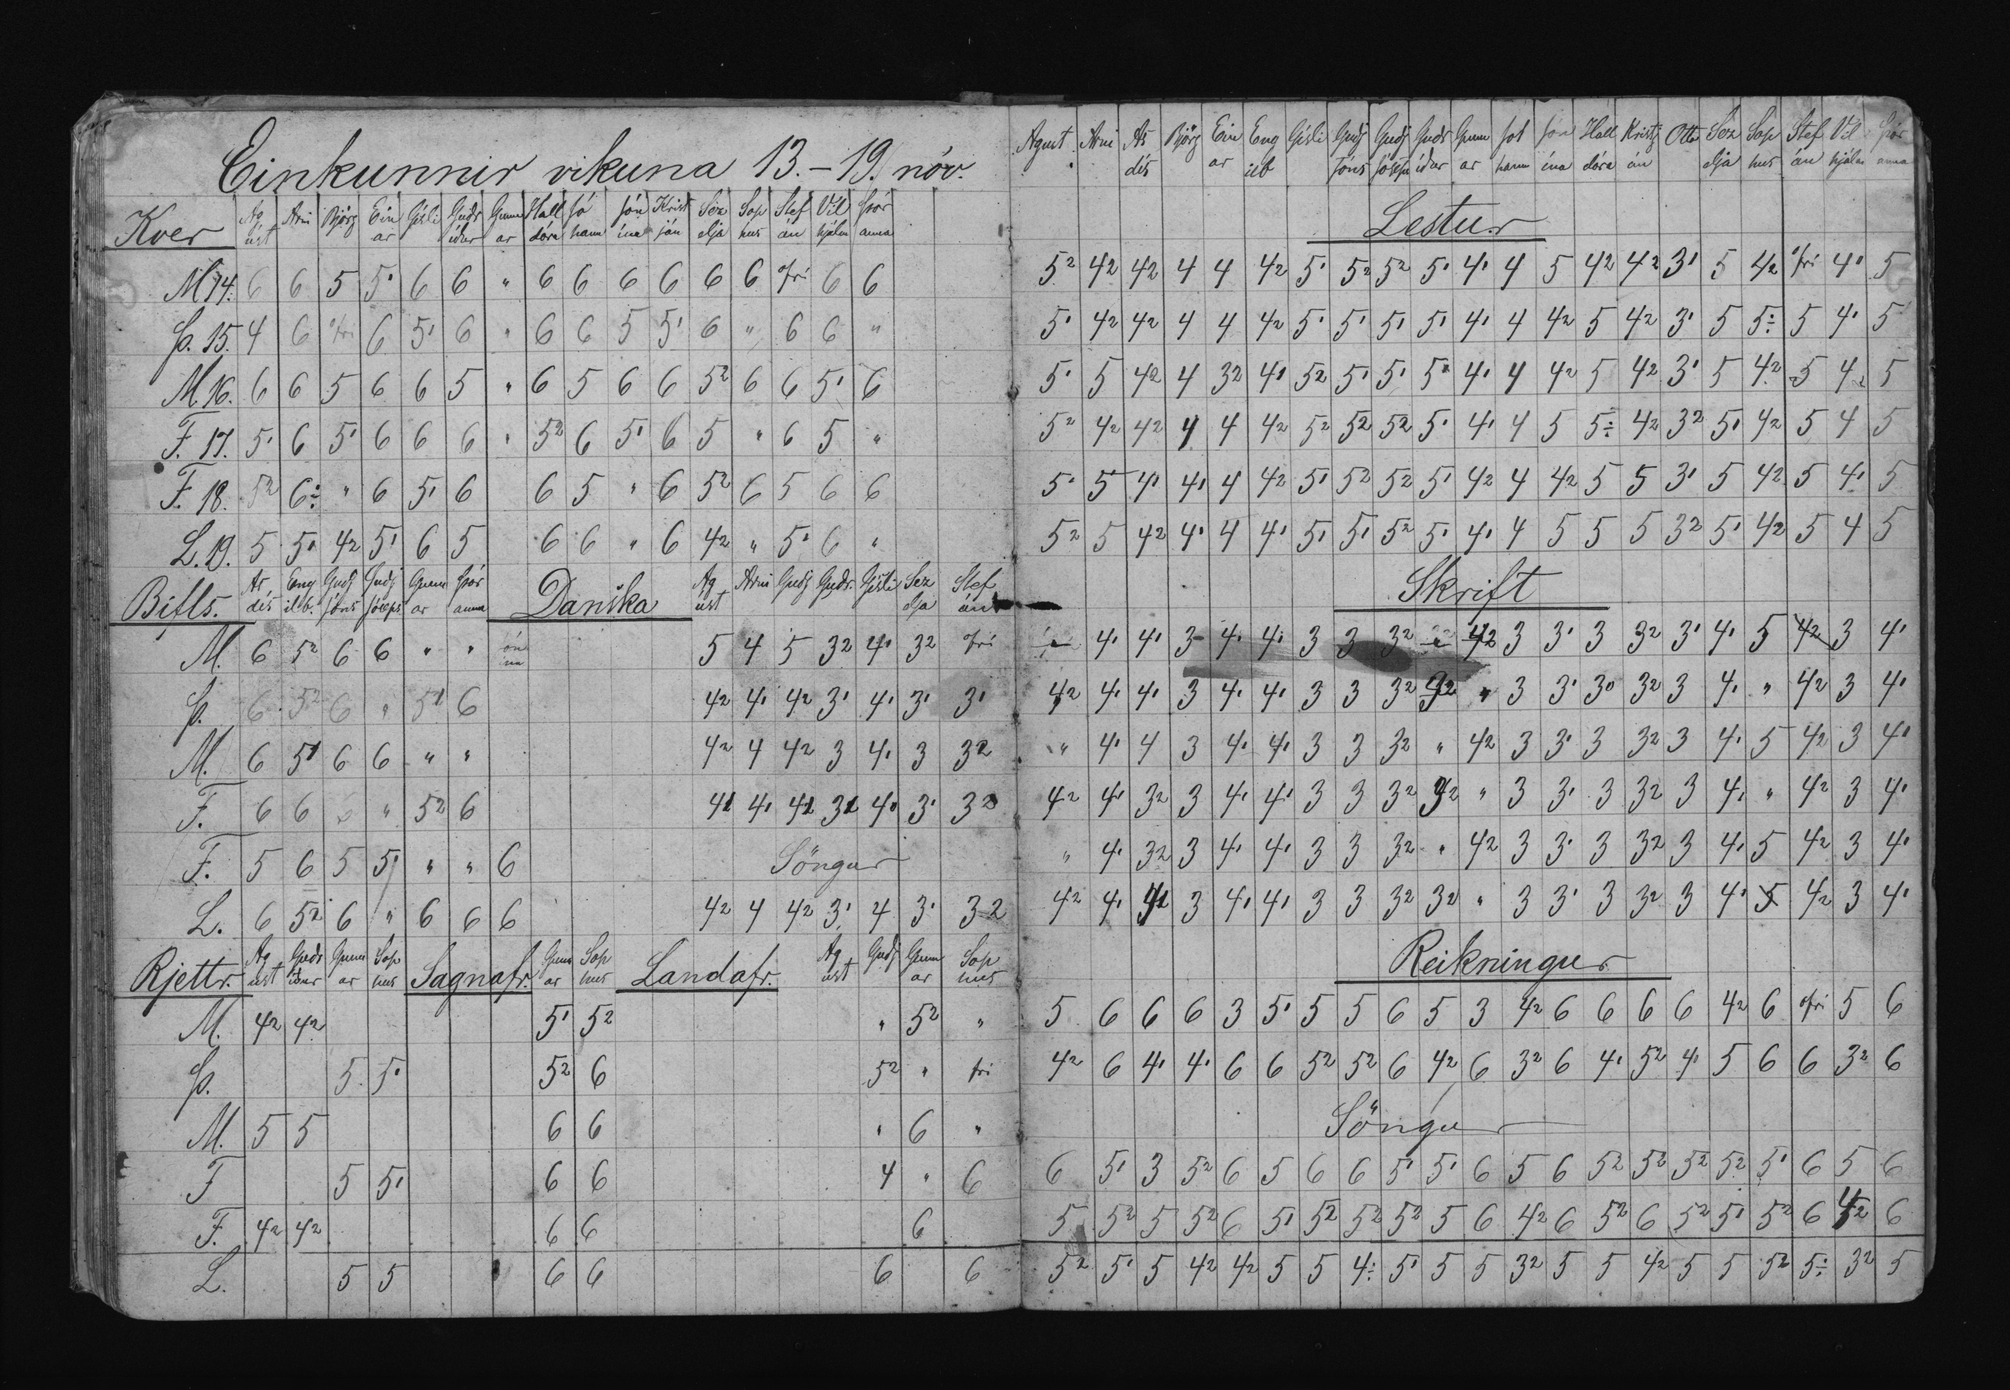 Einkunnir vikuna 13. – 19. nóv.
Kver Ágúst Árni Björg Einar Gísli Guðríður Gunnar Halldóra Jóhann Jónína Kristján Sezelja Sophus Stefán Vilhjálm Þóranna
M. 14. 6 6 5 5' 6 6 " 6 6 6 6 6 6 frí 6 6
Þ. 15. 4 6 frí 6 5' 6 " 6 6 5 5' 6 " 6 6 "
M. 16. 6 6 5 6 6 5 " 6 5 6 6 5² 6 6 5' 6
F. 17. 5' 6 5' 6 6 6 " 5² 6 5' 6 5 " 6 5 "
F. 18. 5² 6÷ " 6 5' 6 6 5 " 6 5² 6 5 6 6
L. 19. 5 5' 4² 5' 6 5 6 6 " 6 4² " 5' 6 "
Bifls. Ásdís Engilb. Guðj Jóns Guðj Jóseps Gunnar Þóranna Danska Ágúst Árni Guðj Guðr. Gísli Sezelja Stefán
M. 6 5² 6 6 " " Jónína 5 4 5 3² 4' 3² frí
Þ. 6 5² 6 " 5' 6 4² 4' 4² 3' 4' 3' 3'
M. 6 5' 6 6 " " 4² 4 4² 3 4' 3 3²
F. 6 6 6 " 5² 6 4² 4' 4² 3² 4' 3' 3²
F. 5 6 5 5' " " 6 Söngur
L. 6 5² 6 " 6 6 6 4² 4 4² 3' 4 3' 3²
Rjettr. Ágúst Guðríður Gunnar Sophus Sagnafr. Gunnar Sophus Landafr. Ágúst Guðj Gunnar Sophus
M. 4² 4² 5' 5² " 5² "
Þ. 5 5' 5² 6 5² " frí
M. 5 5 6 6 " 6 "
F 5 5' 6 6 4 " 6
F. 4² 4² 6 6 6
L. 5 5 6 6 6 6
Ágúst Árni Ásdís Björg Einar Engilb Gísli Guðj Jóns Guðj Jóseps Guðríður Gunnar Jóhann Jónína Halldóra Kristján Otto Sezelja Sophus Stefán Vilhjálm Þóranna
Lestur
5² 4² 4² 4 4 4² 5' 5² 5² 5' 4' 4 5 4² 4² 3' 5 4² frí 4' 5
5' 4² 4² 4 4 4² 5' 5' 5' 5' 4' 4 4² 5 4² 3' 5 5÷ 5 4' 5
5' 5 4² 4 3² 4' 5² 5' 5' 5² 4' 4 4² 5 4² 3' 5 4² 5 4² 5
5² 4² 4² 4 4 4² 5² 5² 5² 5' 4' 4 5 5÷ 4² 3² 5' 4² 5 4 5
5' 5 4' 4' 4 4² 5' 5² 5² 5' 4² 4 4² 5 5 3' 5 4² 5 4' 5
5² 5 4² 4' 4 4' 5' 5' 5² 5' 4' 4 5 5 5 3² 5' 4² 5 4 5
Skrift
4' 4' 3 4' 4' 3 3 3² 4² 3 3' 3 3² 3' 4' 5 4² 3 4'
4² 4' 4' 3 4' 4' 3 3 3² 3² " 3 3' 3' 3² 3 4' " 4² 3 4'
" 4' 4 3 4' 4' 3 3 3² " 4² 3 3' 3 3² 3 4' 5 4² 3 4'
4² 4' 3² 3 4' 4' 3 3 3² 3² " 3 3' 3 3² 3 4' " 4² 3 4'
" 4' 3² 3 4' 4' 3 3 3² " 4² 3 3' 3 3² 3 4' 5 4² 3 4'
4² 4' 4² 3 4' 4' 3 3 3² 3² " 3 3' 3 3² 3 4' 5 4² 3 4'
Reikningur
5 6 6 6 3 5' 5 5 6 5 3 4² 6 6 6 6 4² 6 frí 5 6
4² 6 4' 4' 6 6 5² 5² 6 4² 6 3² 6 4' 5² 4' 5 6 6 3² 6
Söngur
6 5' 3 5² 6 5 6 6 5' 5' 6 5 6 5² 5² 5² 5² 5' 6 5 6
5 5² 5 5² 6 5' 5² 5² 5² 5 6 4² 6 5² 6 5² 5' 5² 6 4² 6
5² 5' 5 4² 4² 5 5 4÷ 5' 5 5 3² 5 5 4² 5 5 5² 5÷ 3² 5